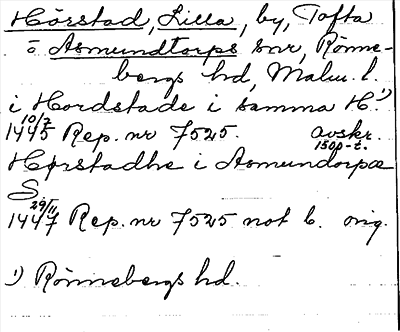 Hörstad, Lilla, by, Tofta
o Asmundtorps snr, Rönne-
bergs hd, Malm. l.
i Hordstade i samma H.¹⁾
10/7
1445 Rep. nr 7525. avskr.
1500-t.
Hørstadhe i Asmundorpæ
S.
29/11
1447 Rep. nr 7525 not b. orig.
¹⁾ Rönnebergs hd.